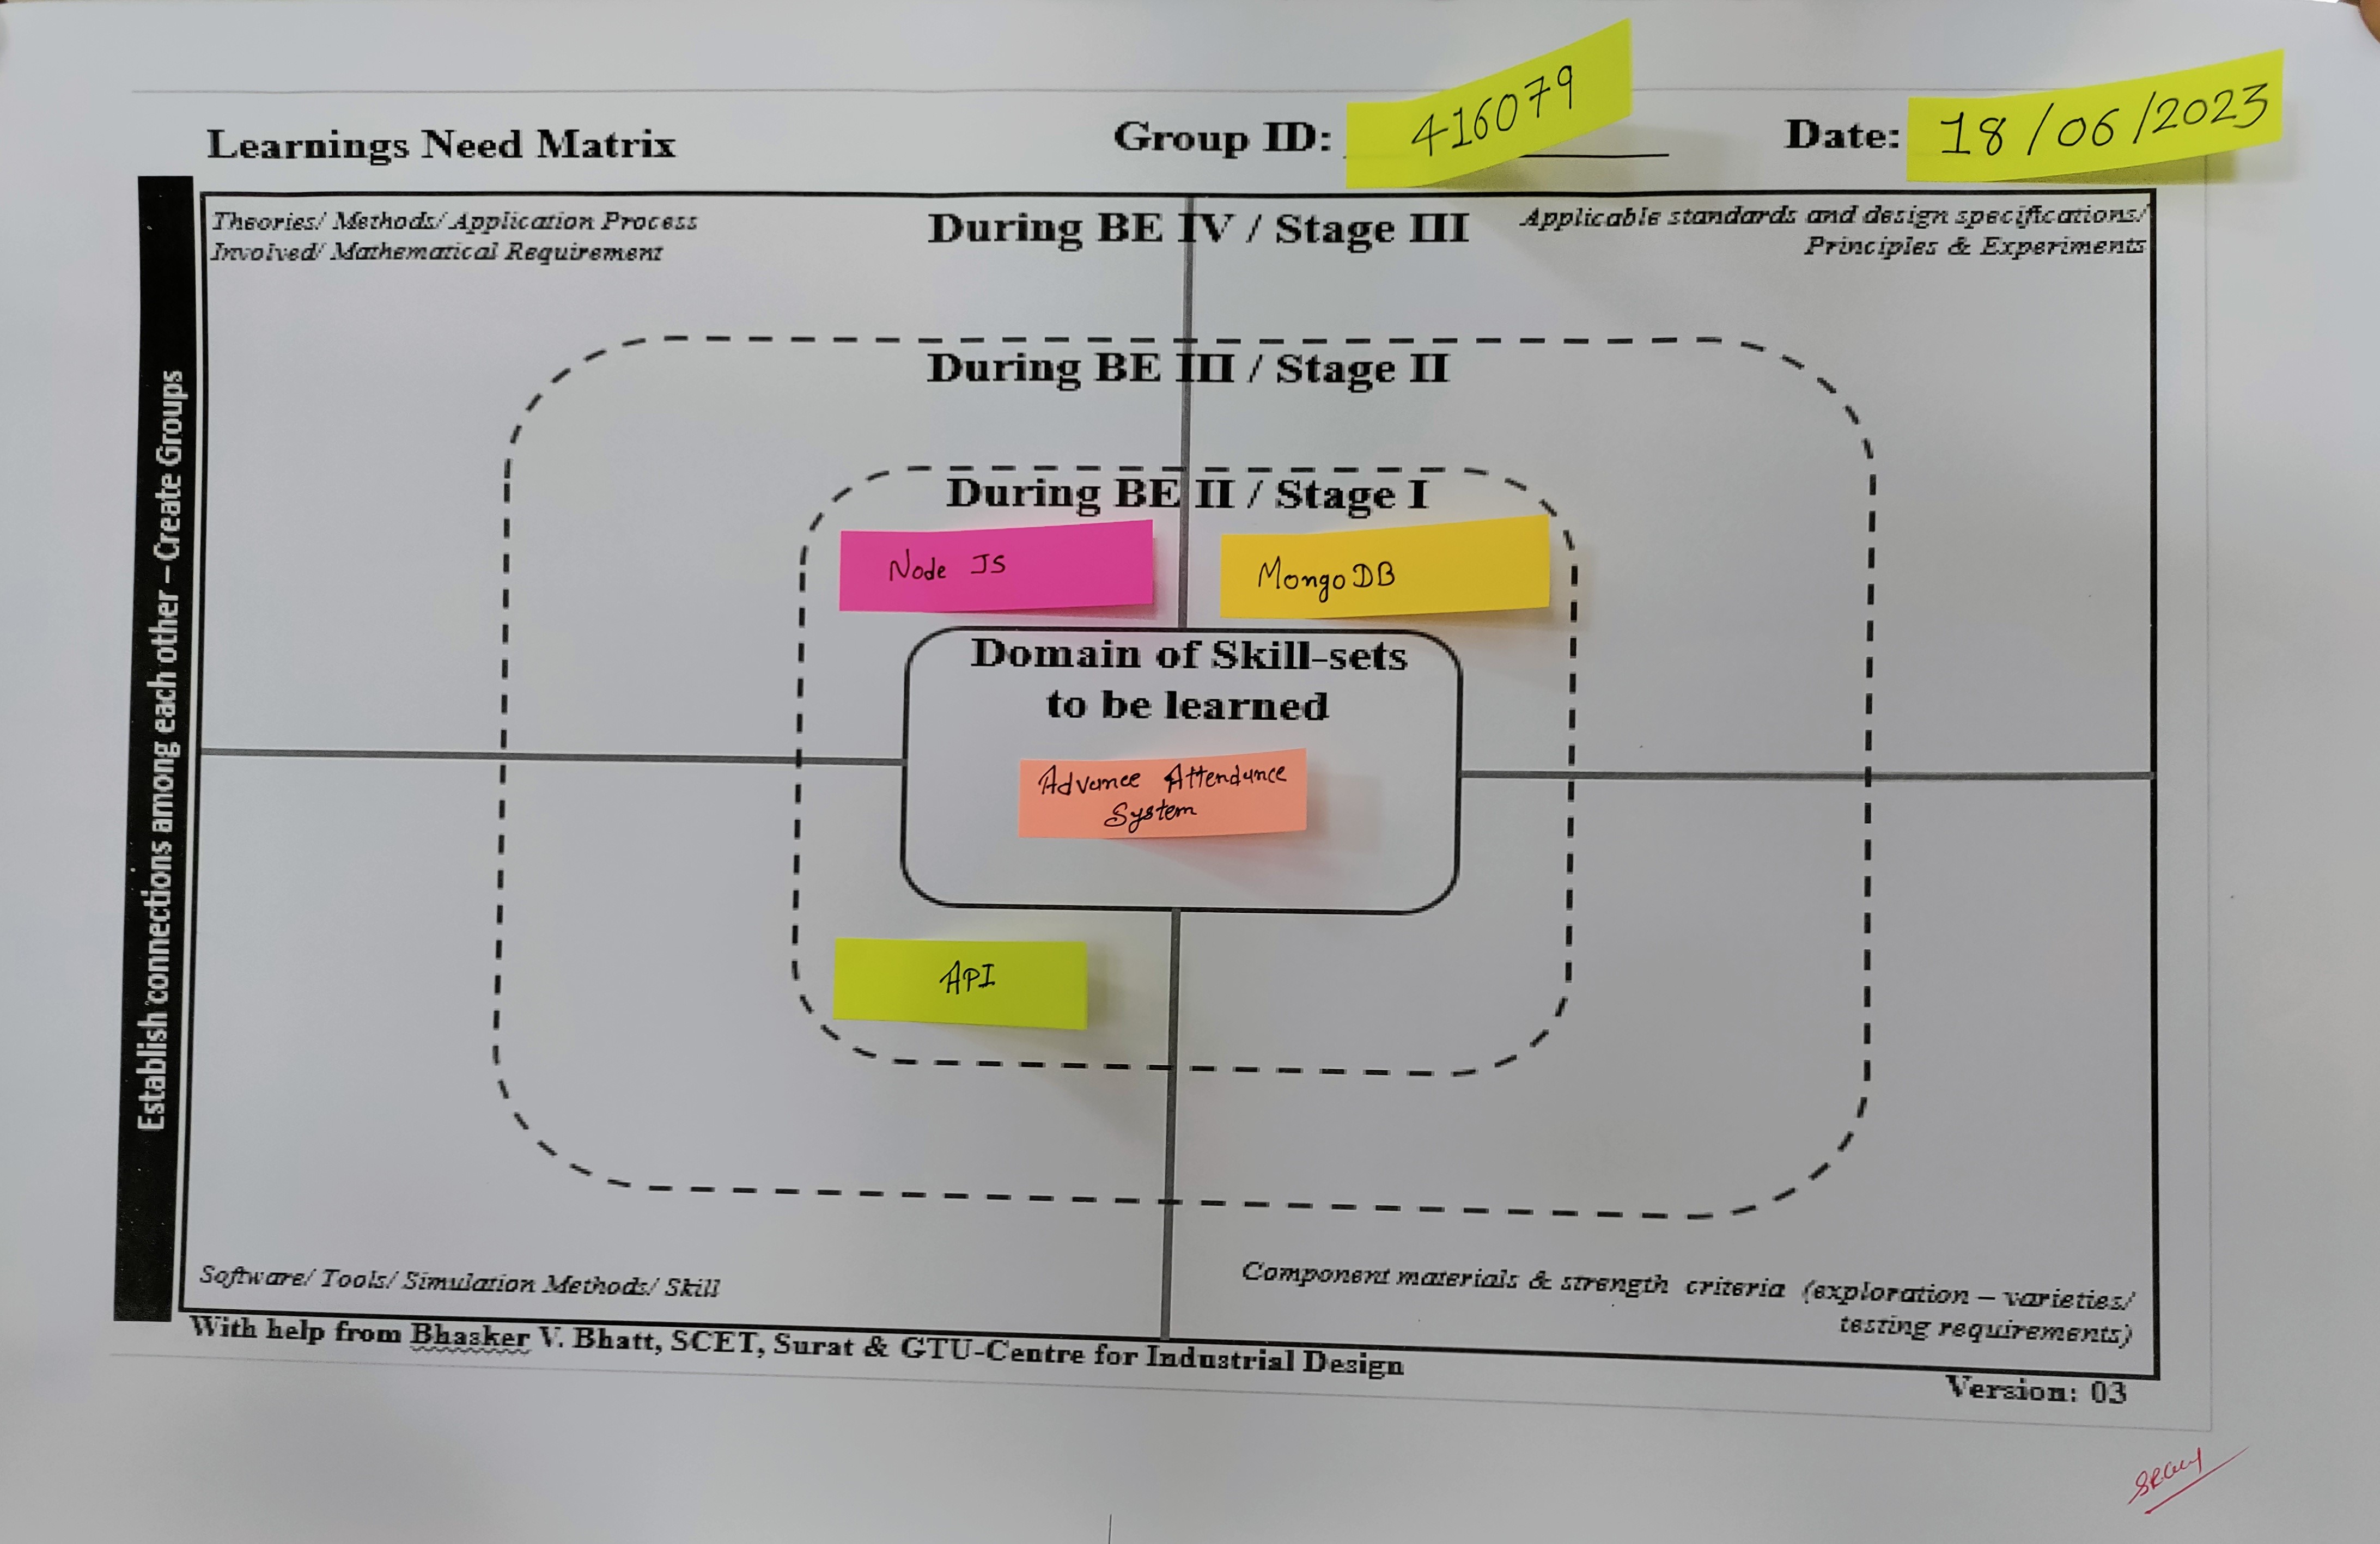 Learnings Need Matrix
Group ID: 416079
Date: 18/06/2023
Establish connections among each other – Create Groups
Theories/ Methods/ Application Process
Involved/ Mathematical Requirement
During BE IV / Stage III
Applicable standards and design specifications/
Principles & Experiments
During BE III / Stage II
During BE II / Stage I
Node JS
MongoDB
Domain of Skill-sets
to be learned
Advance Attendance
System
API
Software/ Tools/ Simulation Methods/ Skill
Component materials & strength criteria (exploration – varieties/
testing requirements)
With help from Bhasker V. Bhatt, SCET, Surat & GTU-Centre for Industrial Design
Version: 03